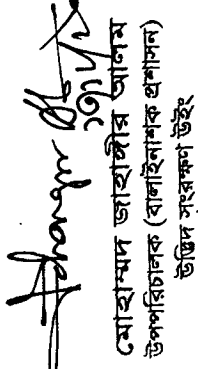 মোহাম্মদ জাহাঙ্গীর আলম
উপপরিচালক (বালাইনাশক প্রশাসন)
উদ্ভিদ সংরক্ষণ উইং